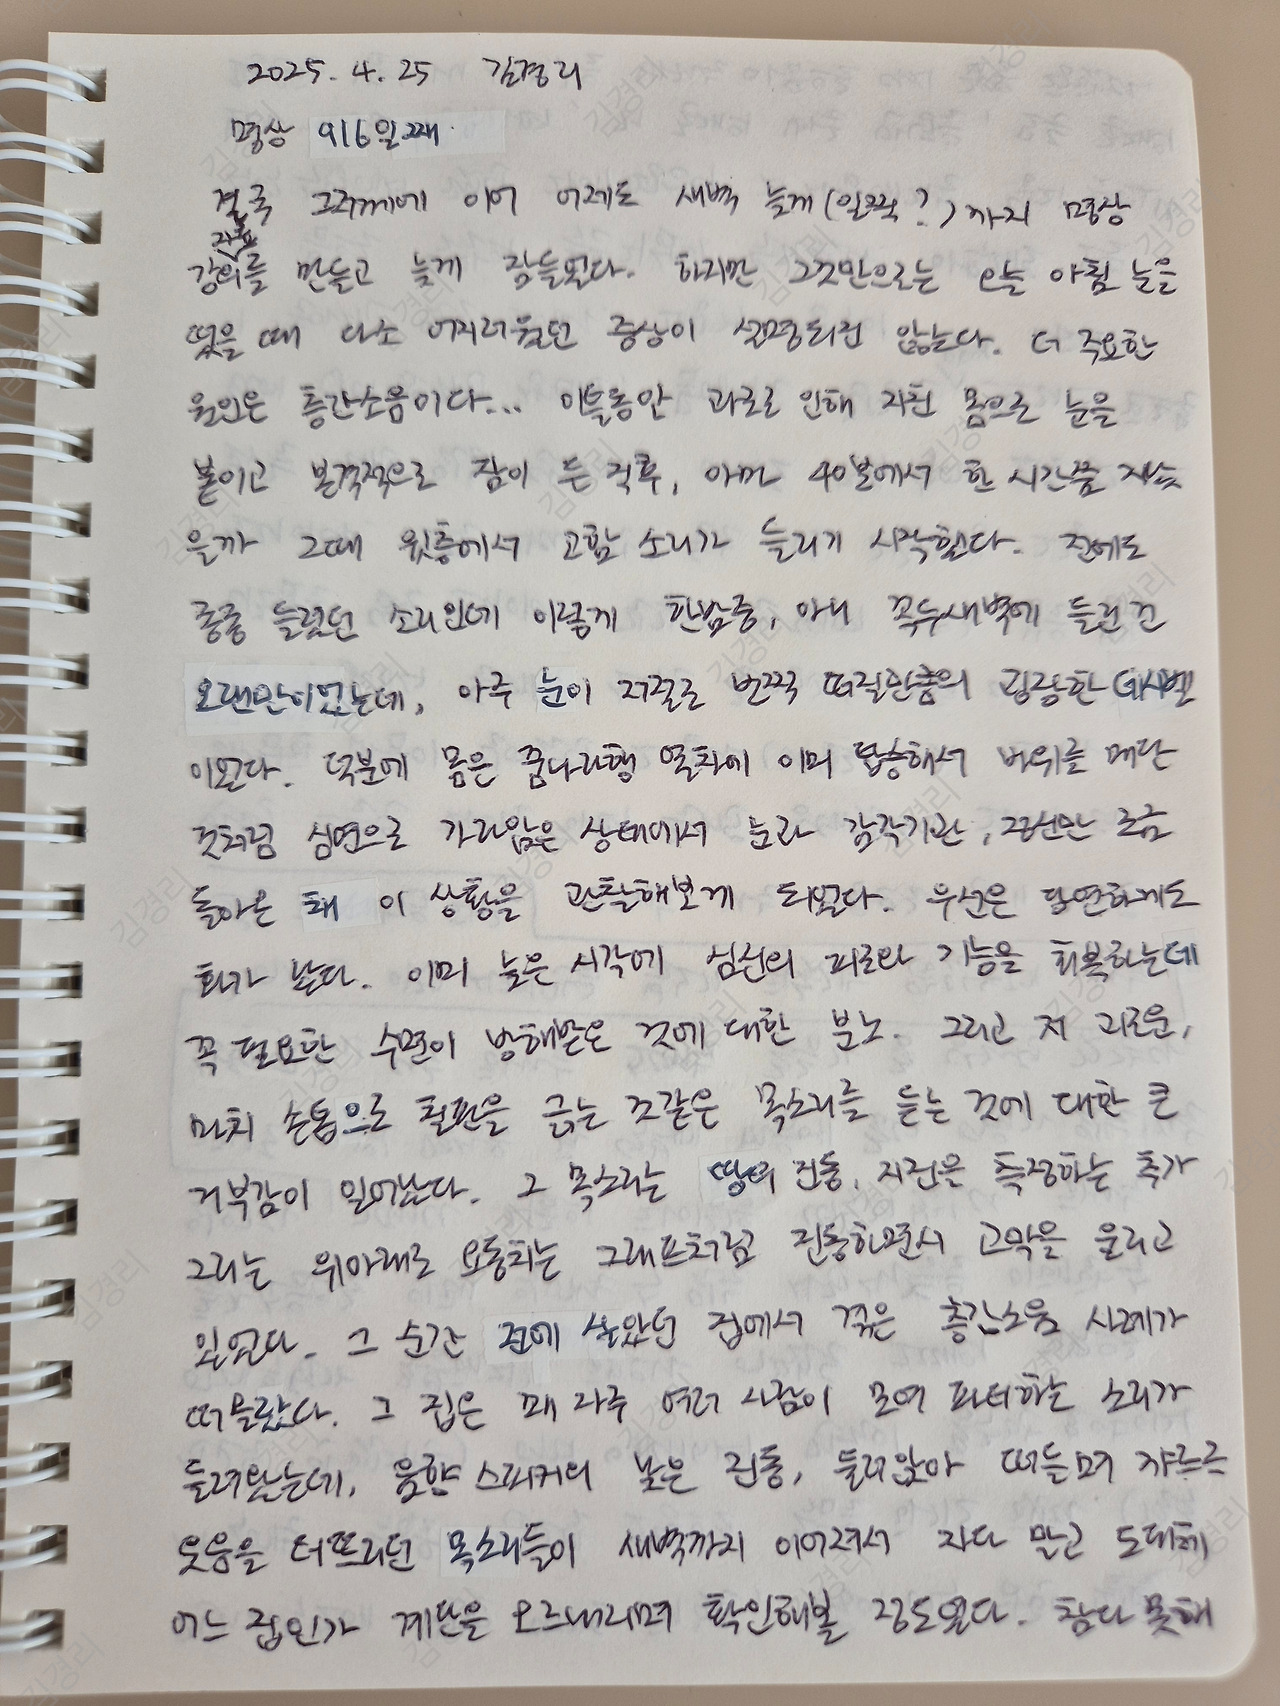 2025. 4. 25 김경리
명상 916일째.
결국 그저께에 이어 어제도 새벽 늦게(일찍?)까지 명상
자료
강의를 만들고 늦게 잠들었다. 하지만 그것만으로는 오늘 아침 눈을
떴을 때 다소 어지러웠던 증상이 설명되진 않는다. 더 주요한
원인은 층간소음이다... 이틀동안 과로로 인해 지친 몸으로 눈을
붙이고 본격적으로 잠이 든 직후, 아마 40분에서 한 시간쯤 지났
을까 그때 윗층에서 고함 소리가 들리기 시작했다. 전에도
종종 들렸던 소리인데 이렇게 한밤중, 아니 꼭두새벽에 들린 건
오랜만이었는데, 아주 눈이 저절로 번쩍 떠질만큼의 굉장한 데시벨
이었다. 덕분에 몸은 꿈나라행 열차에 이미 탑승해서 바위를 매단
것처럼 심연으로 가라앉은 상태에서 눈과 감각기관, 정신만 조금
돌아온 채 이 상황을 관찰해보게 되었다. 우선은 당연하게도
화가 났다. 이미 늦은 시각에 심신의 피로와 기능을 회복하는데
꼭 필요한 수면이 방해받은 것에 대한 분노. 그리고 저 괴로운,
마치 손톱으로 칠판을 긁는 것같은 목소리를 듣는 것에 대한 큰
거부감이 일어났다. 그 목소리는 땅의 진동, 지진을 측정하는 추가
그리는 위아래로 요동치는 그래프처럼 진동하면서 고막을 울리고
있었다. 그 순간 전에 살았던 집에서 겪은 층간소음 사례가
떠올랐다. 그 집은 꽤 자주 여러 사람이 모여 파티하는 소리가
들려왔는데, 음향 스피커의 낮은 진동, 둘러앉아 떠들며 까르르
웃음을 터뜨리던 목소리들이 새벽까지 이어져서 자다 말고 도대체
어느 집인가 계단을 오르내리며 확인해볼 정도였다. 참다 못해